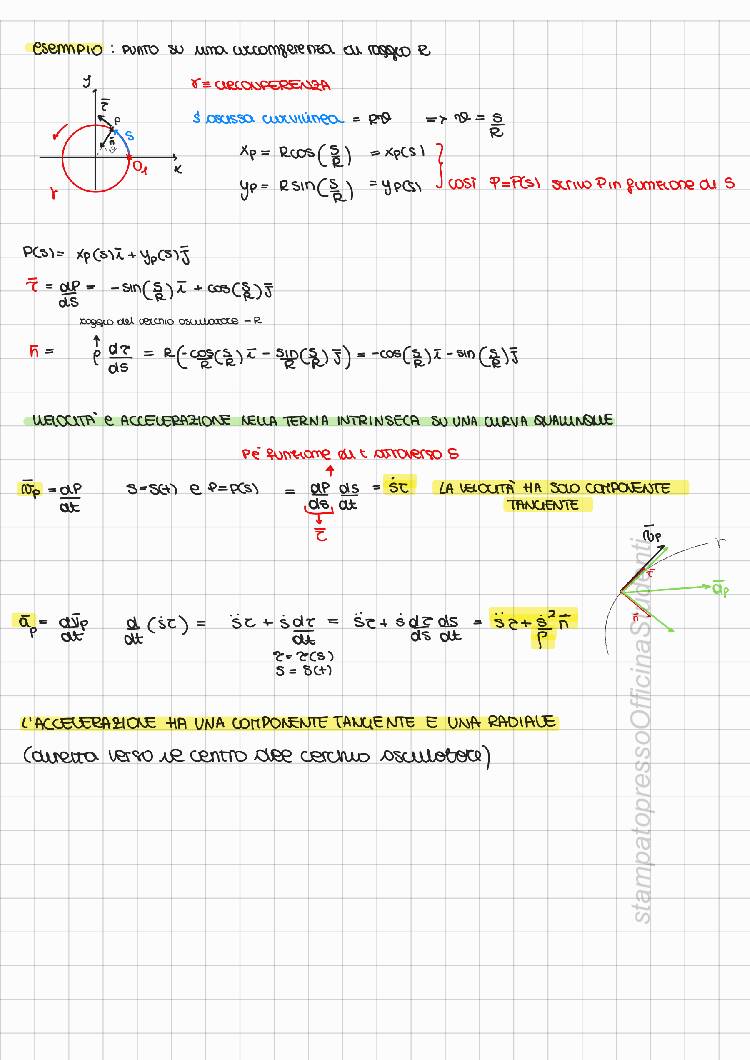 esempio : PUNTO SU UNA circonferenza di raggio R
γ ≡ CIRCONFERENZA
y
τ̄
P
S
n̄
ϑ
O₁
x
γ
S ascissa curvilinea = Rϑ => ϑ = S/R
xp = R cos(S/R) = xp(S)
yp = R sin(S/R) = yp(S)
così P=P(S) scrivo P in funzione di S
P(S) = xp(S)ī + yp(S)j̄
τ̄ = dP/dS = -sin(S/R)ī + cos(S/R)j̄
raggio del cerchio osculatore = R
n̄ = ρ dτ/ds = R(-cos/R(S/R)ī - sin/R(S/R)j̄) = -cos(S/R)ī - sin(S/R)j̄
VELOCITA' e ACCELERAZIONE NELLA TERNA INTRINSECA SU UNA CURVA QUALUNQUE
P è funzione di t attraverso S
v̄p = dP/dt S=S(t) e P=P(S) = dP/ds ds/dt = ṡτ LA VELOCITA' HA SOLO COMPONENTE
TANGENTE
τ̄
v̄p
γ
τ̄
āp
n̄
āp = dv̄p/dt d/dt (ṡτ) = s̈τ + ṡ dτ/dt = s̈τ + ṡ dτ/ds ds/dt = s̈τ + ṡ²/ρ n̄
τ = τ(S)
S = S(t)
L'ACCELERAZIONE HA UNA COMPONENTE TANGENTE E UNA RADIALE
(diretta verso il centro del cerchio osculatore)
stampatopressoOfficinaStudenti